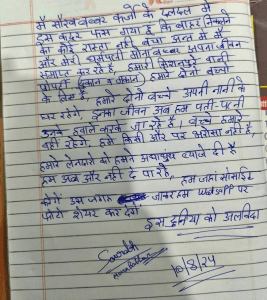 मैं सौरभ बब्बर कर्जो के दलदल में
इस कदर फस गया हूँ कि बाहर निकलने
का कोई रास्ता नहीं बचा अन्त में मैं
और मेरी धर्मपत्नी मोना बब्बर अपना जीवन
समाप्त कर रहे है हमारी किशनपुरा वाली
प्रोपर्टी (दुकान व मकान) हमारे दोनो बच्चों
के लिए है, हमारे दोनो बच्चे अपनी नानी के
घर रहेंगे, इनका जीवन अब हम पति-पत्नी
उनके हवाले करके जा रहे है। बच्चे हमारे
वहीं रहेंगे, हमें किसी और पर भरोसा नहीं है,
हमारे लेनदारो को हमने अंधाधुंध ब्याज दी है
हम अब और नहीं दे पा रहे, हम जहां सोसाईट
करेंगे उस जगह जाकर हम Watsapp पर
फोटो शेयर कर देंगे
इस दुनिया को अलविदा
Sourabh
10/8/24